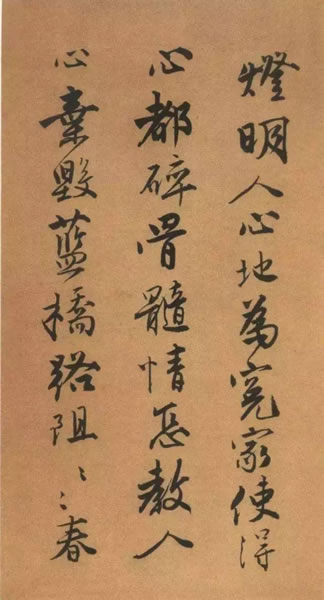 燈明人心地為寃家使得
心都碎骨髓情教人
心棄毀藍橋路阻〻〻春